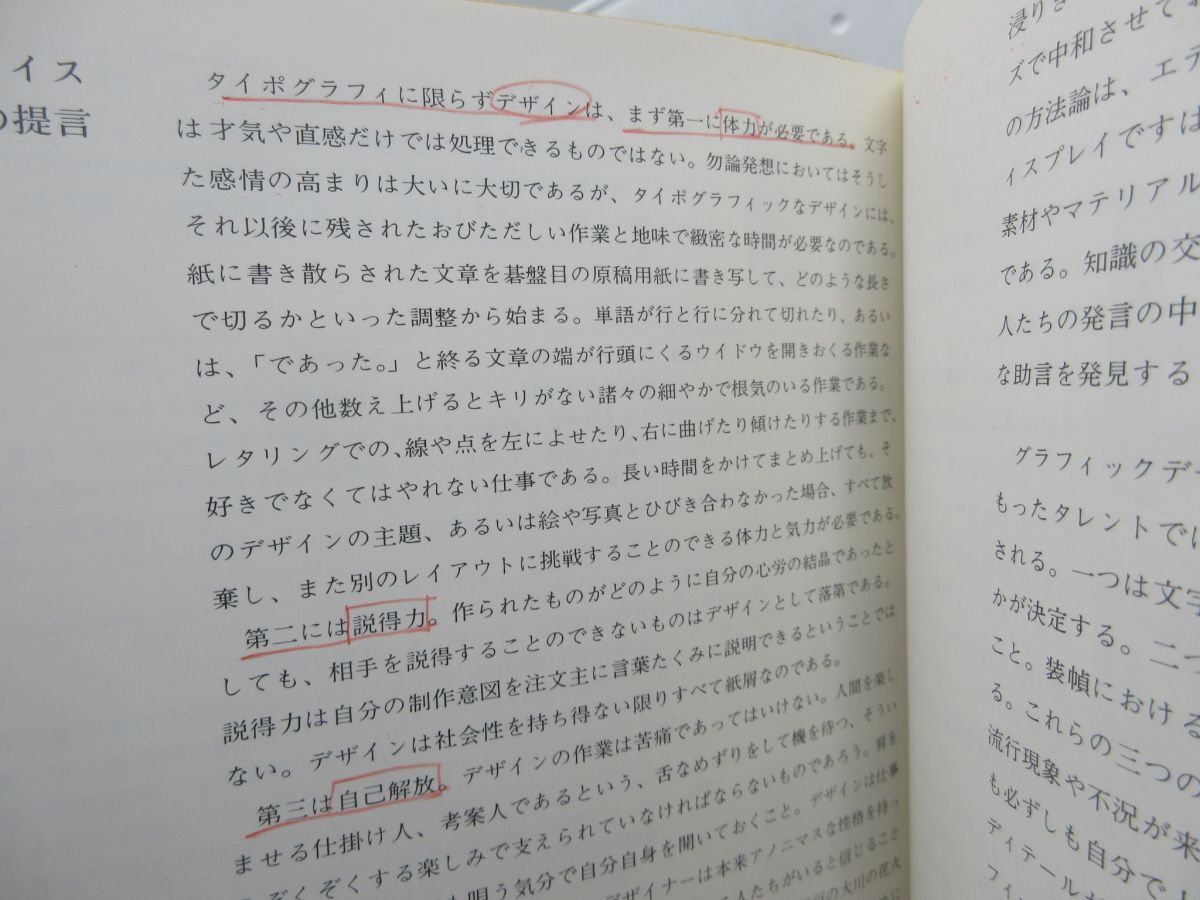 イス
の提言
タイポグラフィに限らずデザインは、まず第一に体力が必要である。文字
は才気や直感だけでは処理できるものではない。勿論発想においてはそうし
た感情の高まりは大いに大切であるが、タイポグラフィックなデザインには、
それ以後に残されたおびただしい作業と地味で緻密な時間が必要なのである。
紙に書き散らされた文章を碁盤目の原稿用紙に書き写して、どのような長さ
で切るかといった調整から始まる。単語が行と行に分れて切れたり、あるい
は、「であった。」と終る文章の端が行頭にくるウイドウを開きおくる作業な
ど、その他数え上げるとキリがない諸々の細やかで根気のいる作業である。
レタリングでの、線や点を左によせたり、右に曲げたり傾けたりする作業まで、
好きでなくてはやれない仕事である。長い時間をかけてまとめ上げても、そ
のデザインの主題、あるいは絵や写真とひびき合わなかった場合、すべて放
棄し、また別のレイアウトに挑戦することのできる体力と気力が必要である。
第二には説得力。作られたものがどのように自分の心労の結晶であったと
しても、相手を説得することのできないものはデザインとして落第である。
説得力は自分の制作意図を注文主に言葉たくみに説明できるということでは
ない。デザインは社会性を持ち得ない限りすべて紙屑なのである。
第三は自己解放。デザインの作業は苦痛であってはいけない。人間を楽し
ませる仕掛け人、考案人であるという、舌なめずりをして機を待つ、そうい
ぞくぞくする楽しみで支えられていなければならないものであろう。肩を
も唄う気分で自分自身を開いておくこと。デザインは仕事
デザイナーは本来アノニマスな性格を持っ
人たちがいると信じること
戸の大川の花火
浸りき
ズで中和させて
の方法論は、エデ
ィスプレイですは
素材やマテリアル
である。知識の交
人たちの発言の中
な助言を発見する
グラフィックデ
もったタレントで
される。一つは文字
かが決定する。二つ
こと。装幀における
る。これらの三つの
流行現象や不況が来
も必ずしも自分で
ディテール
フィ